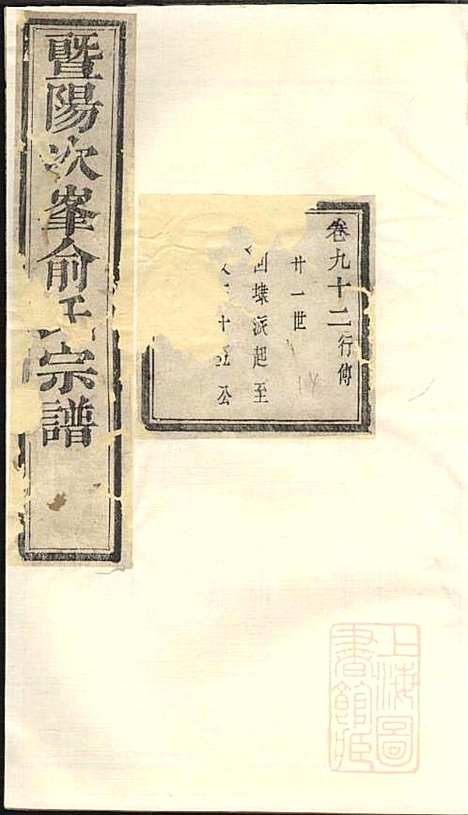 暨陽次峯俞氏宗譜
卷九十二行傳
廿一世
回墚派起至
十五公
上海圖
書館藏